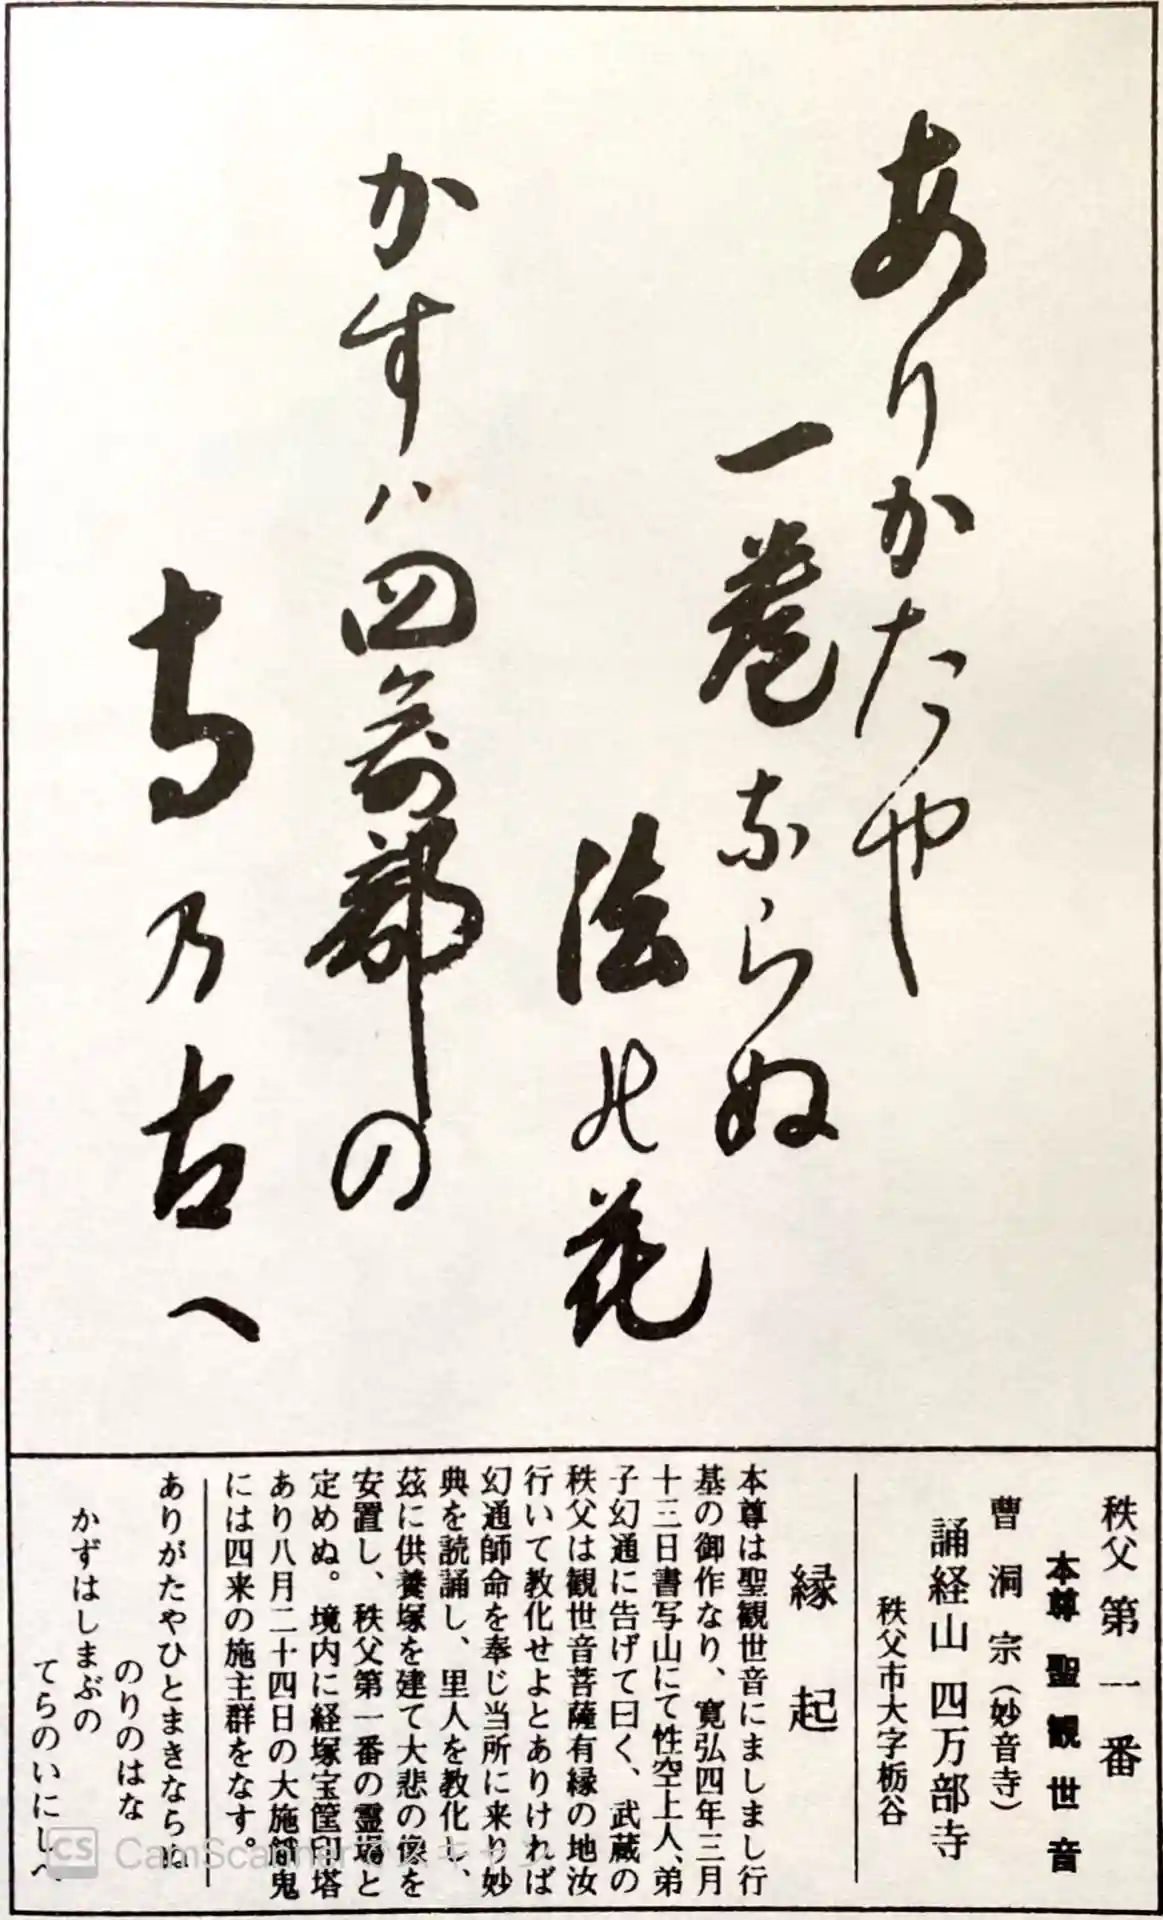 ありかたや
一巻ならぬ
法の花
かすハ四萬部の
寺乃古へ
秩父第一番
本尊聖観世音
曹洞宗(妙音寺)
誦経山 四万部寺
秩父市大字栃谷
縁起
本尊は聖観世音にましまし行
基の御作なり、寛弘四年三月
十三日書写山にて性空上人、弟
子幻通に告げて曰く、武蔵の
秩父は観世音菩薩有縁の地汝
行いて教化せよとありければ
幻通師命を奉じ当所に来り妙
典を読誦し、里人を教化し、
茲に供養塚を建て大悲の像を
安置し、秩父第一番の霊場と
定めぬ。境内に経塚宝筐印塔
あり八月二十四日の大施餓鬼
には四来の施主群をなす。
ありがたやひとまきならぬ
のりのはな
かずはしまぶの
てらのいにしへ
CS CamScanner